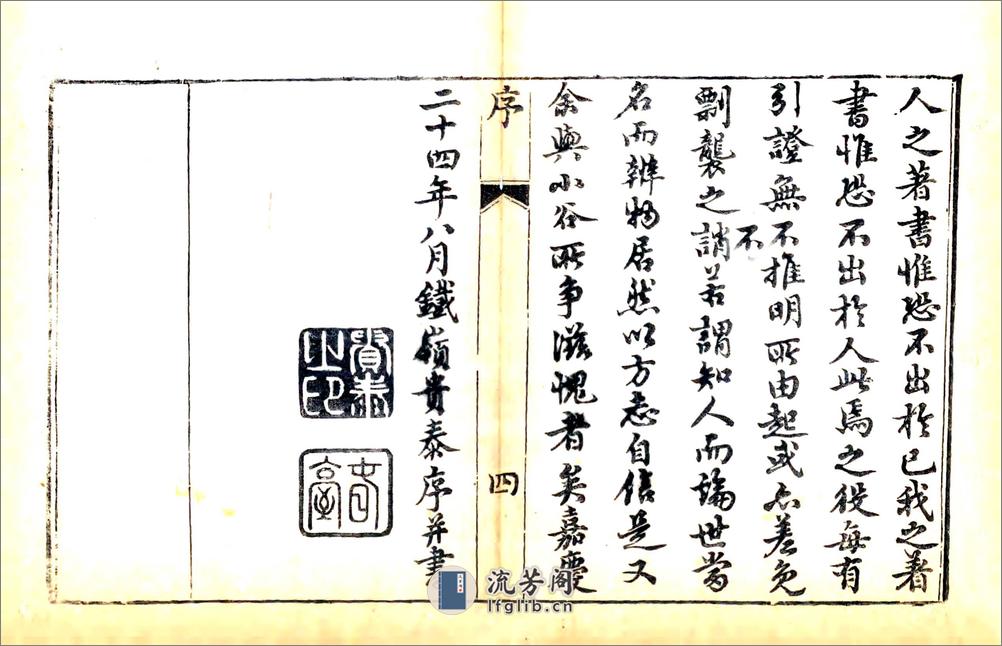 人之著書惟恐不出於已我之著
書惟恐不出於人此焉之役每有
引證無不推明所由起或亦差免
剽襲之誚若謂知人而論世當
不
名而辨物居然以方志自信是又
余與小谷所爭滋愧者矣嘉慶
序
四
二十四年八月鐵嶺貴泰序并書
貴泰
之印
流芳阁
lfglib.cn